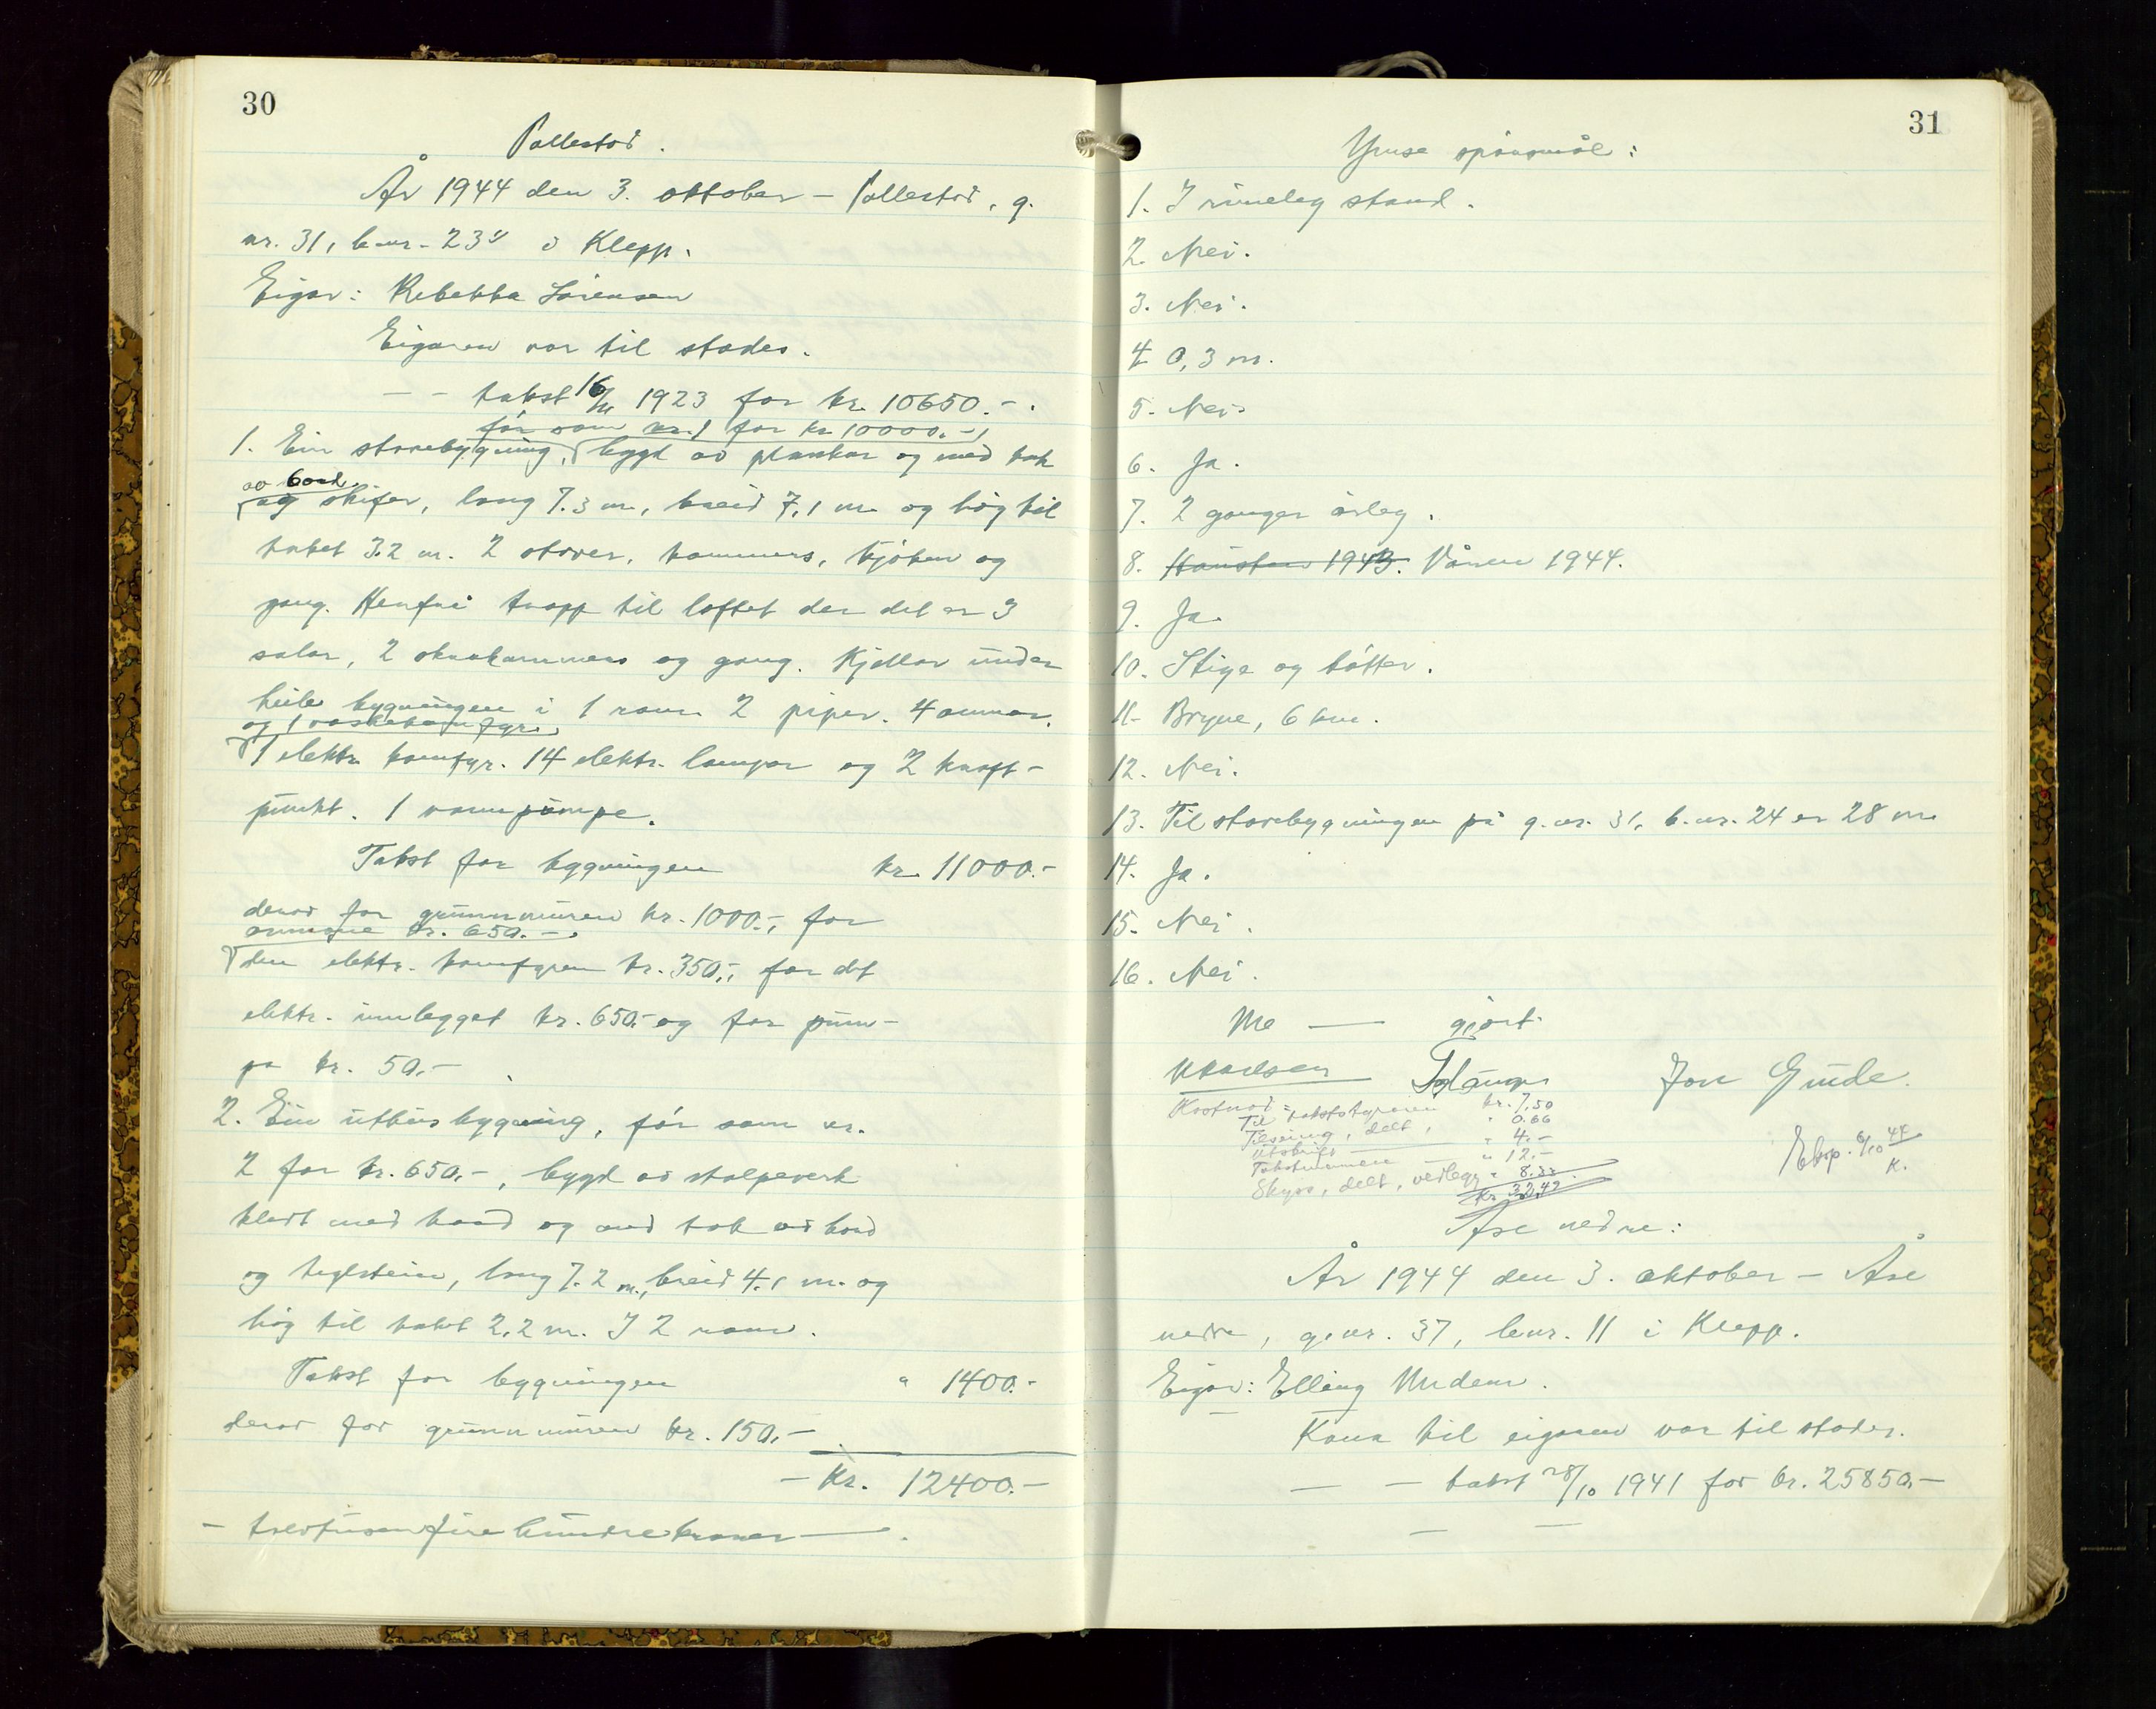 30
Pollestad.
År 1944 den 3. oktober - Pollestad, g.
nr. 31, b.nr. 23 i Klepp.
Eigar: Rebekka Sørensen
Eigaren var til stades.
- - takst 16/11 1923 for kr. 10650.-.
før som nr. 1 for kr 10000.-,
1. Ein stovebygning, bygd av plankar og med tak
av bord
og skifer, lang 7.3 m, breid 7,1 m og høg til
taket 3.2 m. 2 stover, kammers, kjøken og
gang. Herfrå trapp til loftet der det er 3
salar, 2 skråkammers og gang. Kjellar under
heile bygningen i 1 rom. 2 piper. 4 omnar.
og 1 vaskekomfyr.
1 elektr. komfyr. 14 elektr. lampor og 2 kraft-
punkt. 1 vannpumpe.
Takst for bygningen kr. 11000.-
derav for grunnmuren kr. 1000.-, for
omnane kr. 650.-,
den elektr. komfyren kr. 350,-, for det
elektr. innlegget kr. 650.- og for pum-
pa kr. 50.-
2. Ein uthusbygning, før som nr.
2 for kr. 650.-, bygd av stolpeverk
kledt med bord og med tak av bord
og teglstein, lang 7.2 m., breid 4.1 m. og
høg til taket 2.2 m. I 2 rom.
Takst for bygningen " 1400.-
derav for grunnmuren kr. 150,-
- Kr. 12400.-
- tolvtusenfirehundrekroner -.
31
Ymse spørsmål:
1. I rimeleg stand.
2. Nei.
3. Nei.
4. 0,3 m.
5. Nei.
6. Ja.
7. 2 ganger årleg.
8. Hausten 1943. Våren 1944.
9. Ja.
10. Stige og bøtter.
11. Bryne, 6 km.
12. Nei.
13. Til stovebygningen på g.nr. 31, b.nr. 24 er 28 m.
14. Ja.
15. Nei.
16. Nei.
Me — gjort.
Jon Gude.
Kostnad:
Til takststyraren kr. 7,50
Tilseiing, delt, " 0.66
Utskrift " 4.-
Takstmennene " 12.-
Skyss, delt, vedlegg " 8.33
Kr. 32,49.
Eksp. 6/10 44
K.
Åse nedre:
År 1944 den 3. oktober - Åse
nedre, g.nr. 37, b.nr. 11 i Klepp.
Eigar: Elling
Kona til eigaren var til stades.
- - takst 28/10 1941 for kr. 25850,-
- -